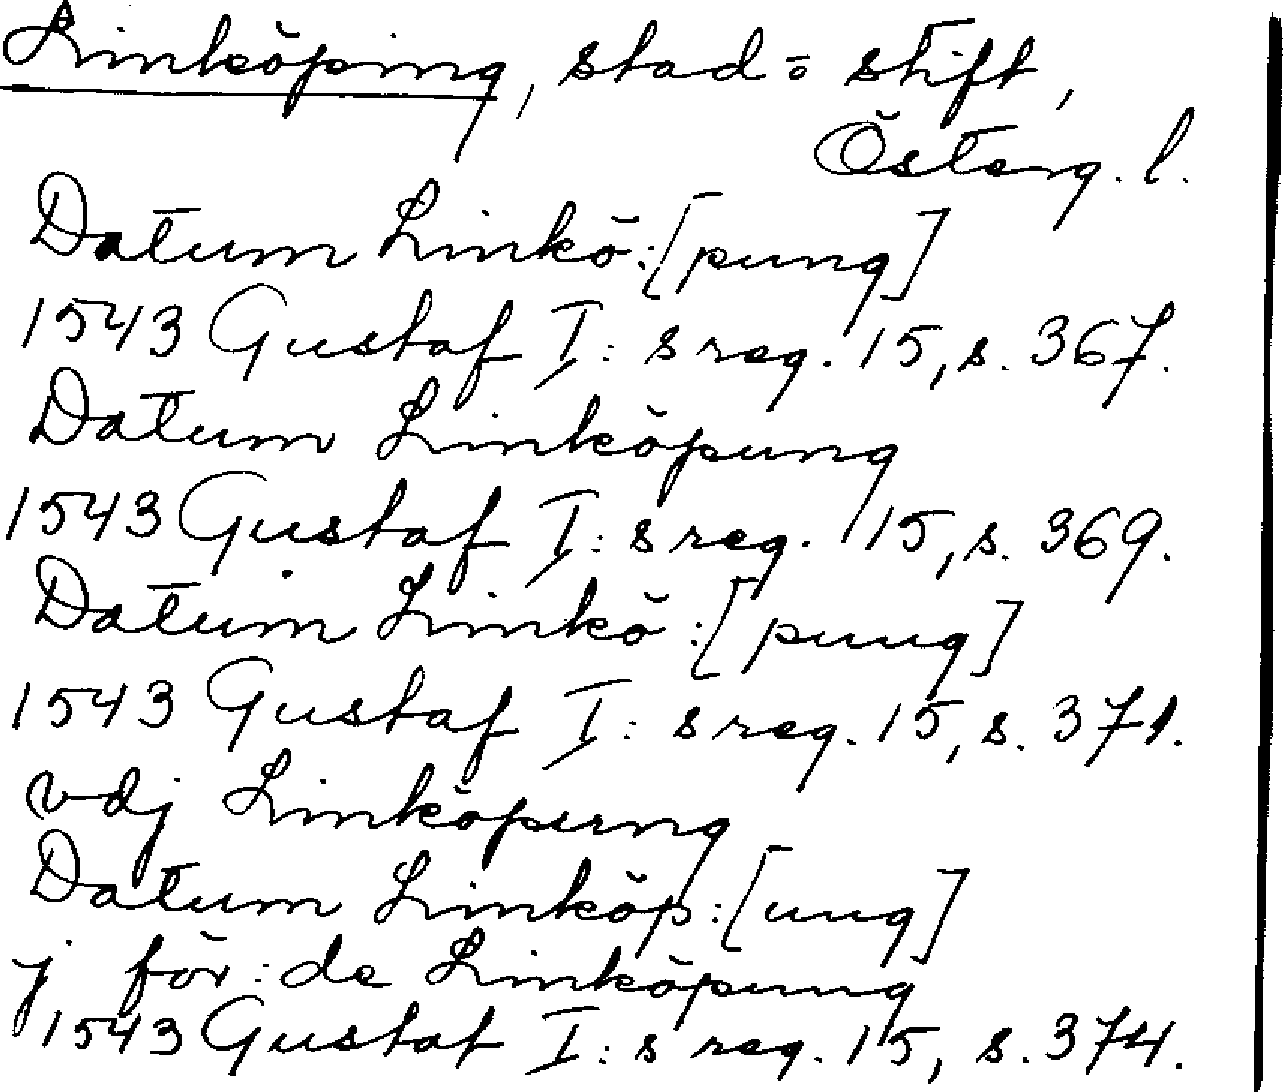 Linköping, stad o stift,
Österg. l.
Datum Linkö:[pung]
1543 Gustaf I:s reg. 15, s. 367.
Datum Linköpung
1543 Gustaf I:s reg. 15, s. 369.
Datum Linkö:[pung]
1543 Gustaf I:s reg. 15, s. 371.
vdj Linköpung
Datum Linköp:[ung]
j för:de Linköpung
1543 Gustaf I:s reg. 15, s. 374.